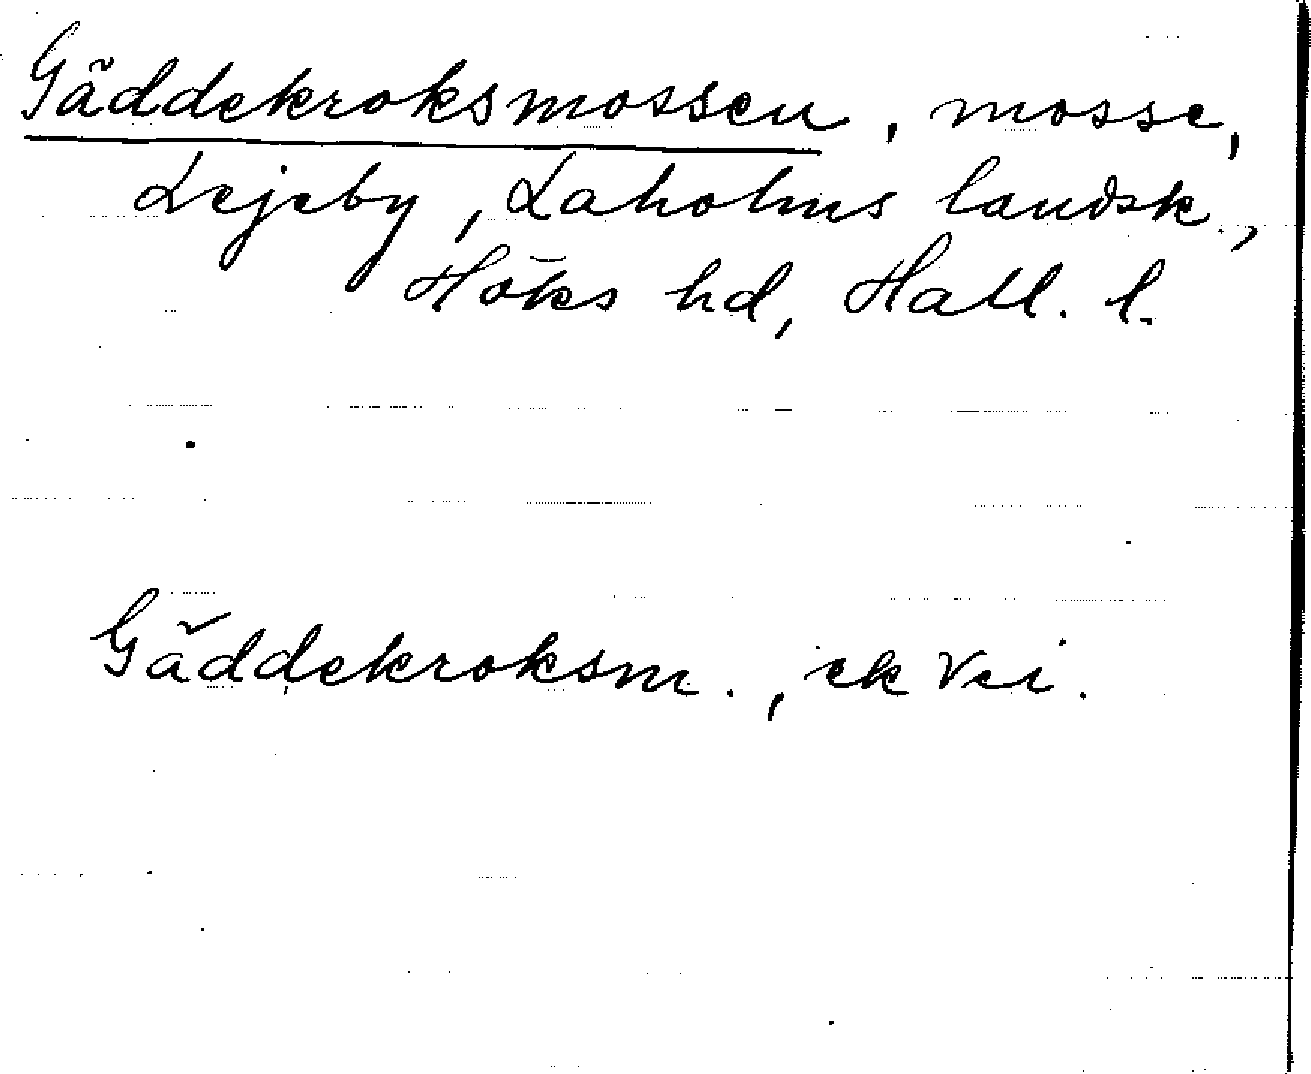 Gäddekroksmossen, mosse,
Lejeby, Laholms landsk.,
Höks hd, Hall. l.
Gäddekroksm., ek VIII.